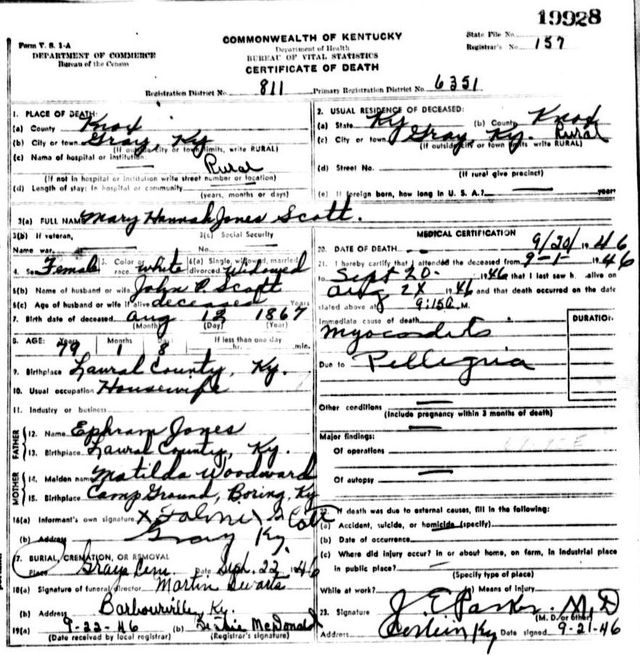 19928
Form V. S. 1-A
COMMONWEALTH OF KENTUCKY
State File No.
DEPARTMENT OF COMMERCE
Department of Health
Registrar's No. 157
Bureau of the Census
BUREAU OF VITAL STATISTICS
CERTIFICATE OF DEATH
Registration District No. 811
Primary Registration District No. 6351
1. PLACE OF DEATH:
(a) County Knox
(b) City or town Gray, Ky
(If outside city or town limits, write RURAL)
(c) Name of hospital or institution Rural
(If not in hospital or institution write street number or location)
(d) Length of stay: In hospital or community
(years, months or days)
2. USUAL RESIDENCE OF DECEASED:
(a) State Ky (b) County Knox
(c) City or town Gray, Ky. Rural
(If outside city or town limits, write RURAL)
(d) Street No.
(If rural give precinct)
(e) If foreign born, how long in U. S. A.? years
3(a) FULL NAME Mary Hannah Jones Scott.
3(b) If veteran, 3(c) Social Security
Name war No.
4. Sex Female 5. Color or race white 6(a) Single, widowed, married, divorced widowed
6(b) Name of husband or wife John P. Scott
6(c) Age of husband or wife if alive deceased Years
7. Birth date of deceased Aug 12 1867
(Month) (Day) (Year)
8. AGE: Years Months Days If less than one day
79 1 8 hr. min.
9. Birthplace Laural County, Ky.
10. Usual occupation Housewife
11. Industry or business
FATHER
12. Name Ephram Jones
13. Birthplace Laural County, Ky.
MOTHER
14. Maiden name Matilda Woodward
15. Birthplace Camp Ground, Boring, Ky
16(a) Informant's own signature X Scott
(b) Address Gray Ky.
17. BURIAL, CREMATION, OR REMOVAL
Place Grays Cem. Date Sept. 22, 1946
18(a) Signature of funeral director Martin
(b) Address Barbourville, Ky.
19(a) 9-22-46 (b) McDonald
(Date received by local registrar) (Registrar's signature)
MEDICAL CERTIFICATION
20. DATE OF DEATH 9/20/1946
21. I hereby certify that I attended the deceased from 9-1- 1946
to Sept 20- 1946 that I last saw h alive on
Aug 2 1946 and that death occurred on the date
stated above at 9:15 M.
Immediate cause of death
DURATION
Myocardits
Due to Pellegria
Other conditions
(Include pregnancy within 3 months of death)
Major findings:
Of operations
Of autopsy
22. If death was due to external causes, fill in the following:
(a) Accident, suicide, or homicide (specify)
(b) Date of occurrence
(c) Where did injury occur? in or about home, on farm, in industrial place
in public place?
(Specify type of place)
While at work? Means of injury
23. Signature J. E. Parker M. D
(M. D. or other)
Address Corbin Ky Date signed 9-21-46